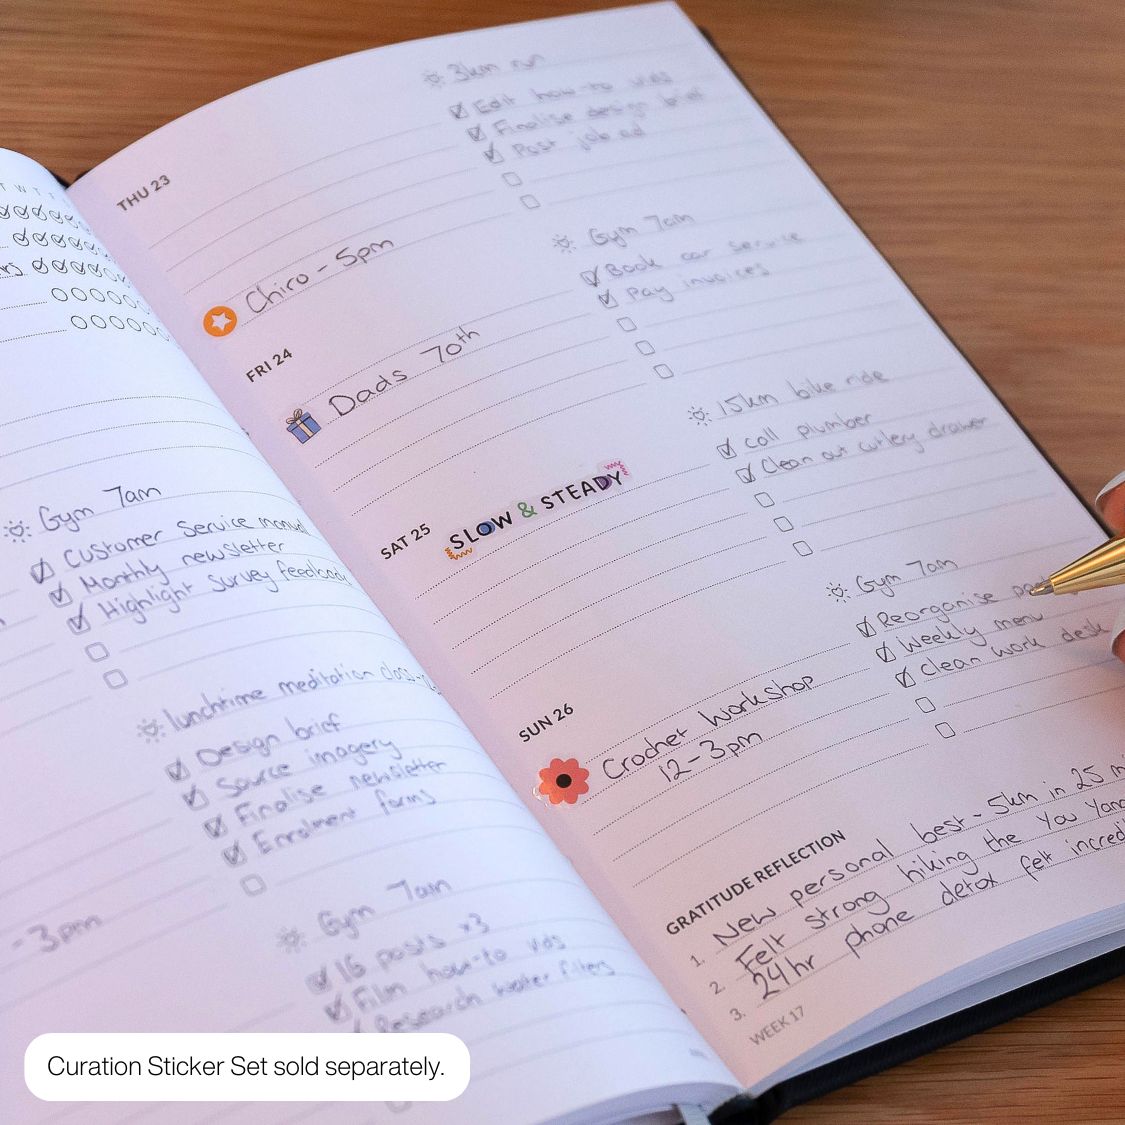 T W T
rs
Gym 7am
Customer Service manual
Monthly newsletter
Highlight Survey feedback
lunchtime meditation class
Design brief
Source imagery
Finalise newsletter
Enrolment forms
- 3pm
Gym 7am
16 posts x3
Film how-to vids
Research water filters
THU 23
3km run
Edit how-to vids
Finalise design brief
Post job ad
Chiro - 5pm
FRI 24
Gym 7am
Book car service
Pay invoices
Dads 70th
SAT 25
15km bike ride
call plumber
Clean out cutlery drawer
SLOW & STEADY
SUN 26
Gym 7am
Reorganise
Weekly menu
clean work desk
Crochet Workshop
12-3pm
GRATITUDE REFLECTION
1. New personal best - 5km in 25
2. Felt strong hiking the You Yang
3. 24hr phone detox felt incred
WEEK 17
Curation Sticker Set sold separately.